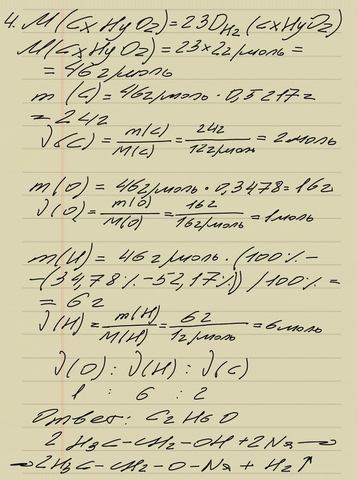 4. M(CxHyOz)=23D H2 (CxHyOz)
M(CxHyOz)=23×2г/моль =
= 46 г/моль
m (C) = 46г/моль · 0,5217 =
= 24г
ν(C) = m(C)/M(C) = 24г/12г/моль = 2моль
m(O) = 46г/моль · 0,3478 = 16г
ν(O) = m(O)/M(O) = 16г/16г/моль = 1моль
m(H) = 46 г/моль · (100% -
-(34,78% -52,17%)) /100% =
= 6 г
ν(H) = m(H)/M(H) = 6г/1г/моль = 6моль
ν(O) : ν(H) : ν(C)
1 : 6 : 2
Ответ: C2H6O
2 H3C-CH2-OH + 2Na →
→ 2H3C-CH2-O-Na + H2↑